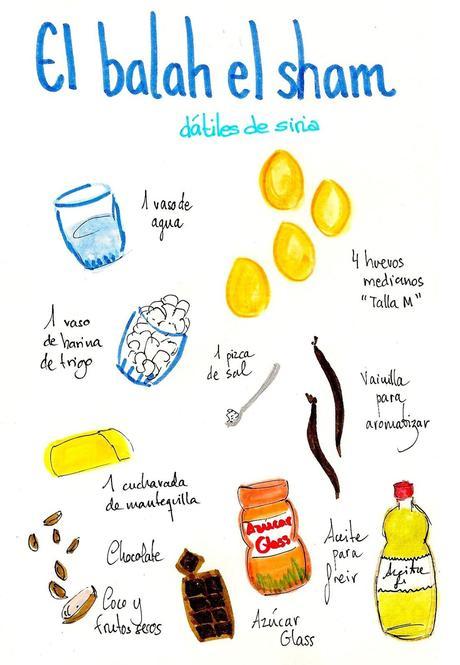 El balah el sham
dátiles de siria
1 vaso de
agua
4 huevos
medianos
"Talla M"
1 vaso
de harina
de trigo
1 pizca
de sal
Vainilla
para
aromatizar
1 cucharada
de mantequilla
Azúcar
Glass
Aceite
para
freir
Aceite
Chocolate
Coco y
frutos secos
Azúcar
Glass